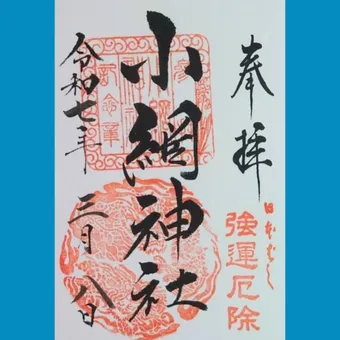 奉拝
強運厄除
小網神社
令和七年
三月八日